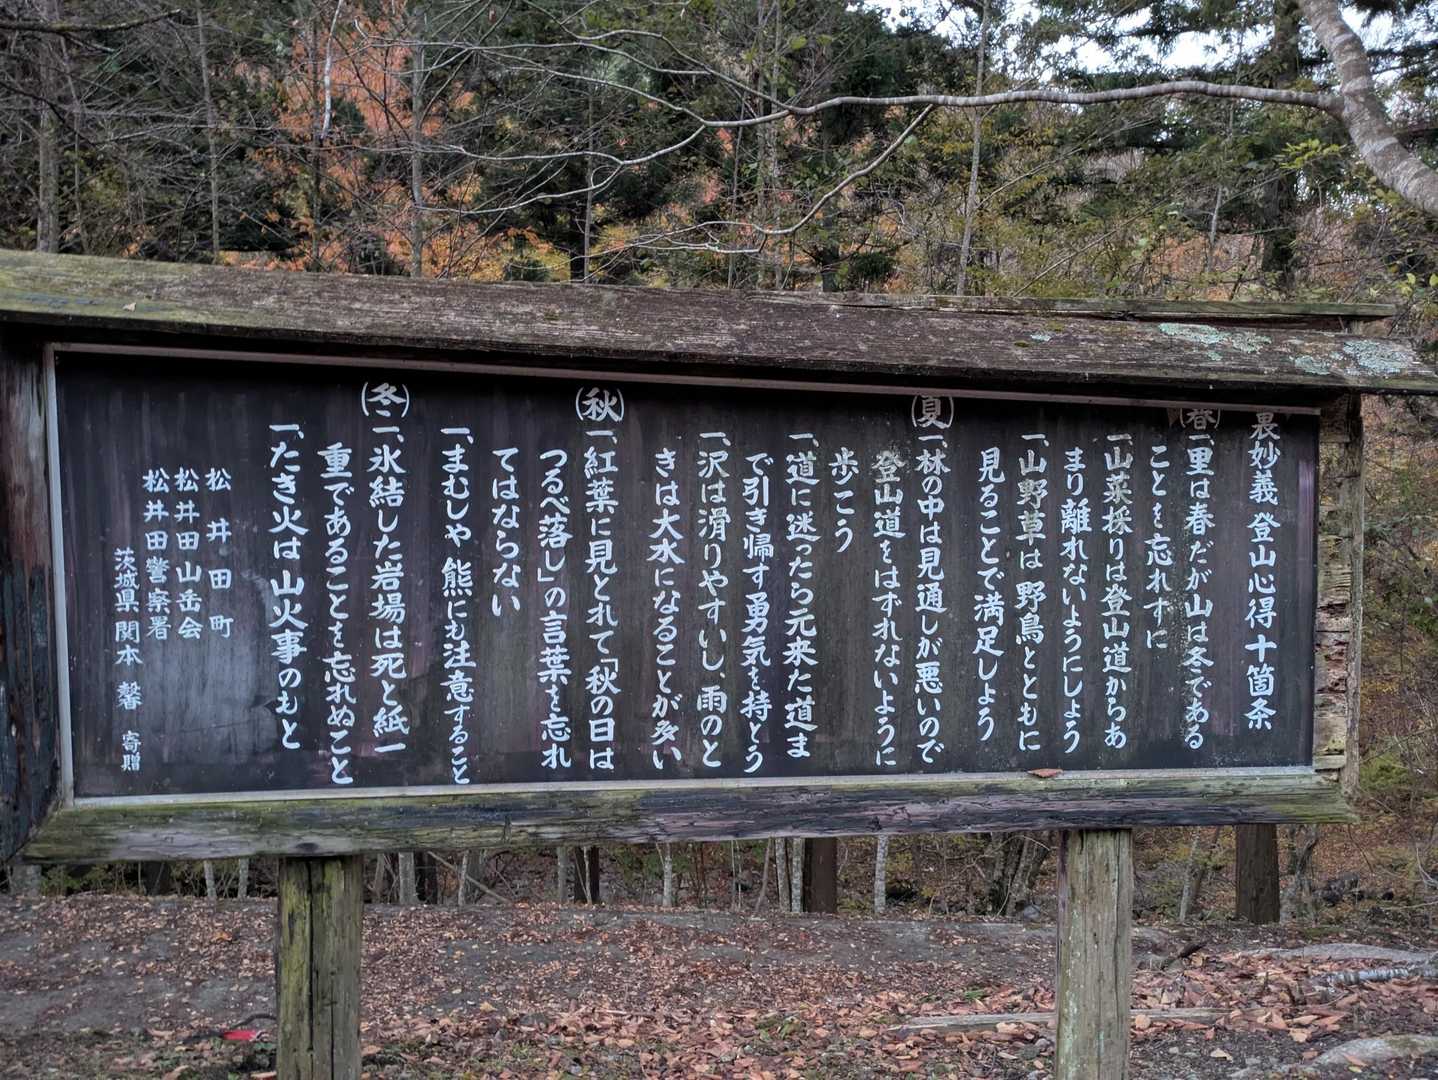 裏妙義登山心得十箇条
(春)一、里は春だが山は冬である
ことを忘れずに
一、山菜採りは登山道からあ
まり離れないようにしよう
一、山野草は野鳥とともに
見ることで満足しよう
(夏)一、林の中は見通しが悪いので
登山道をはずれないように
歩こう
一、道に迷ったら元来た道ま
で引き帰す勇気を持とう
一、沢は滑りやすいし、雨のと
きは大水になることが多い
(秋)一、紅葉に見とれて「秋の日は
つるべ落し」の言葉を忘れ
てはならない
一、まむしや熊にも注意すること
(冬)一、氷結した岩場は死と紙一
重であることを忘れぬこと
一、たき火は山火事のもと
松井田町
松井田山岳会
松井田警察署
茨城県 関本 馨 寄贈